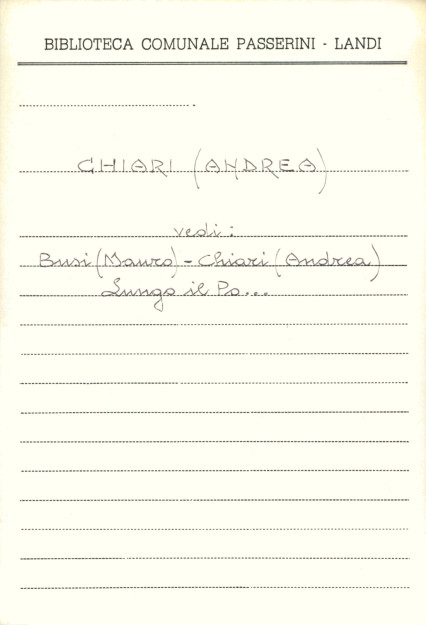 BIBLIOTECA COMUNALE PASSERINI - LANDI
CHIARI (ANDREA)
vedi:
Busi (Mauro) - Chiari (Andrea)
Lungo il Po...